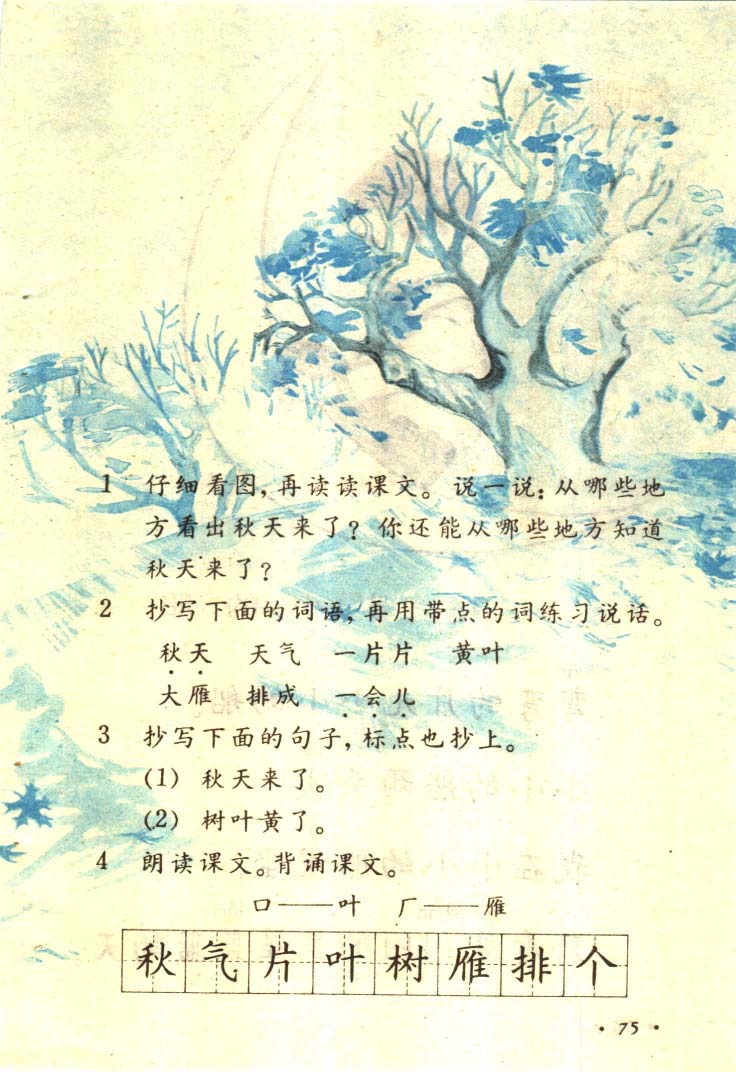 1 仔细看图，再读读课文。说一说：从哪些地
方看出秋天来了？你还能从哪些地方知道
秋天来了？
2 抄写下面的词语，再用带点的词练习说话。
秋天 天气 一片片 黄叶
大雁 排成 一会儿
3 抄写下面的句子，标点也抄上。
(1) 秋天来了。
(2) 树叶黄了。
4 朗读课文。背诵课文。
口——叶 厂——雁
秋气片叶树雁排个
·75·